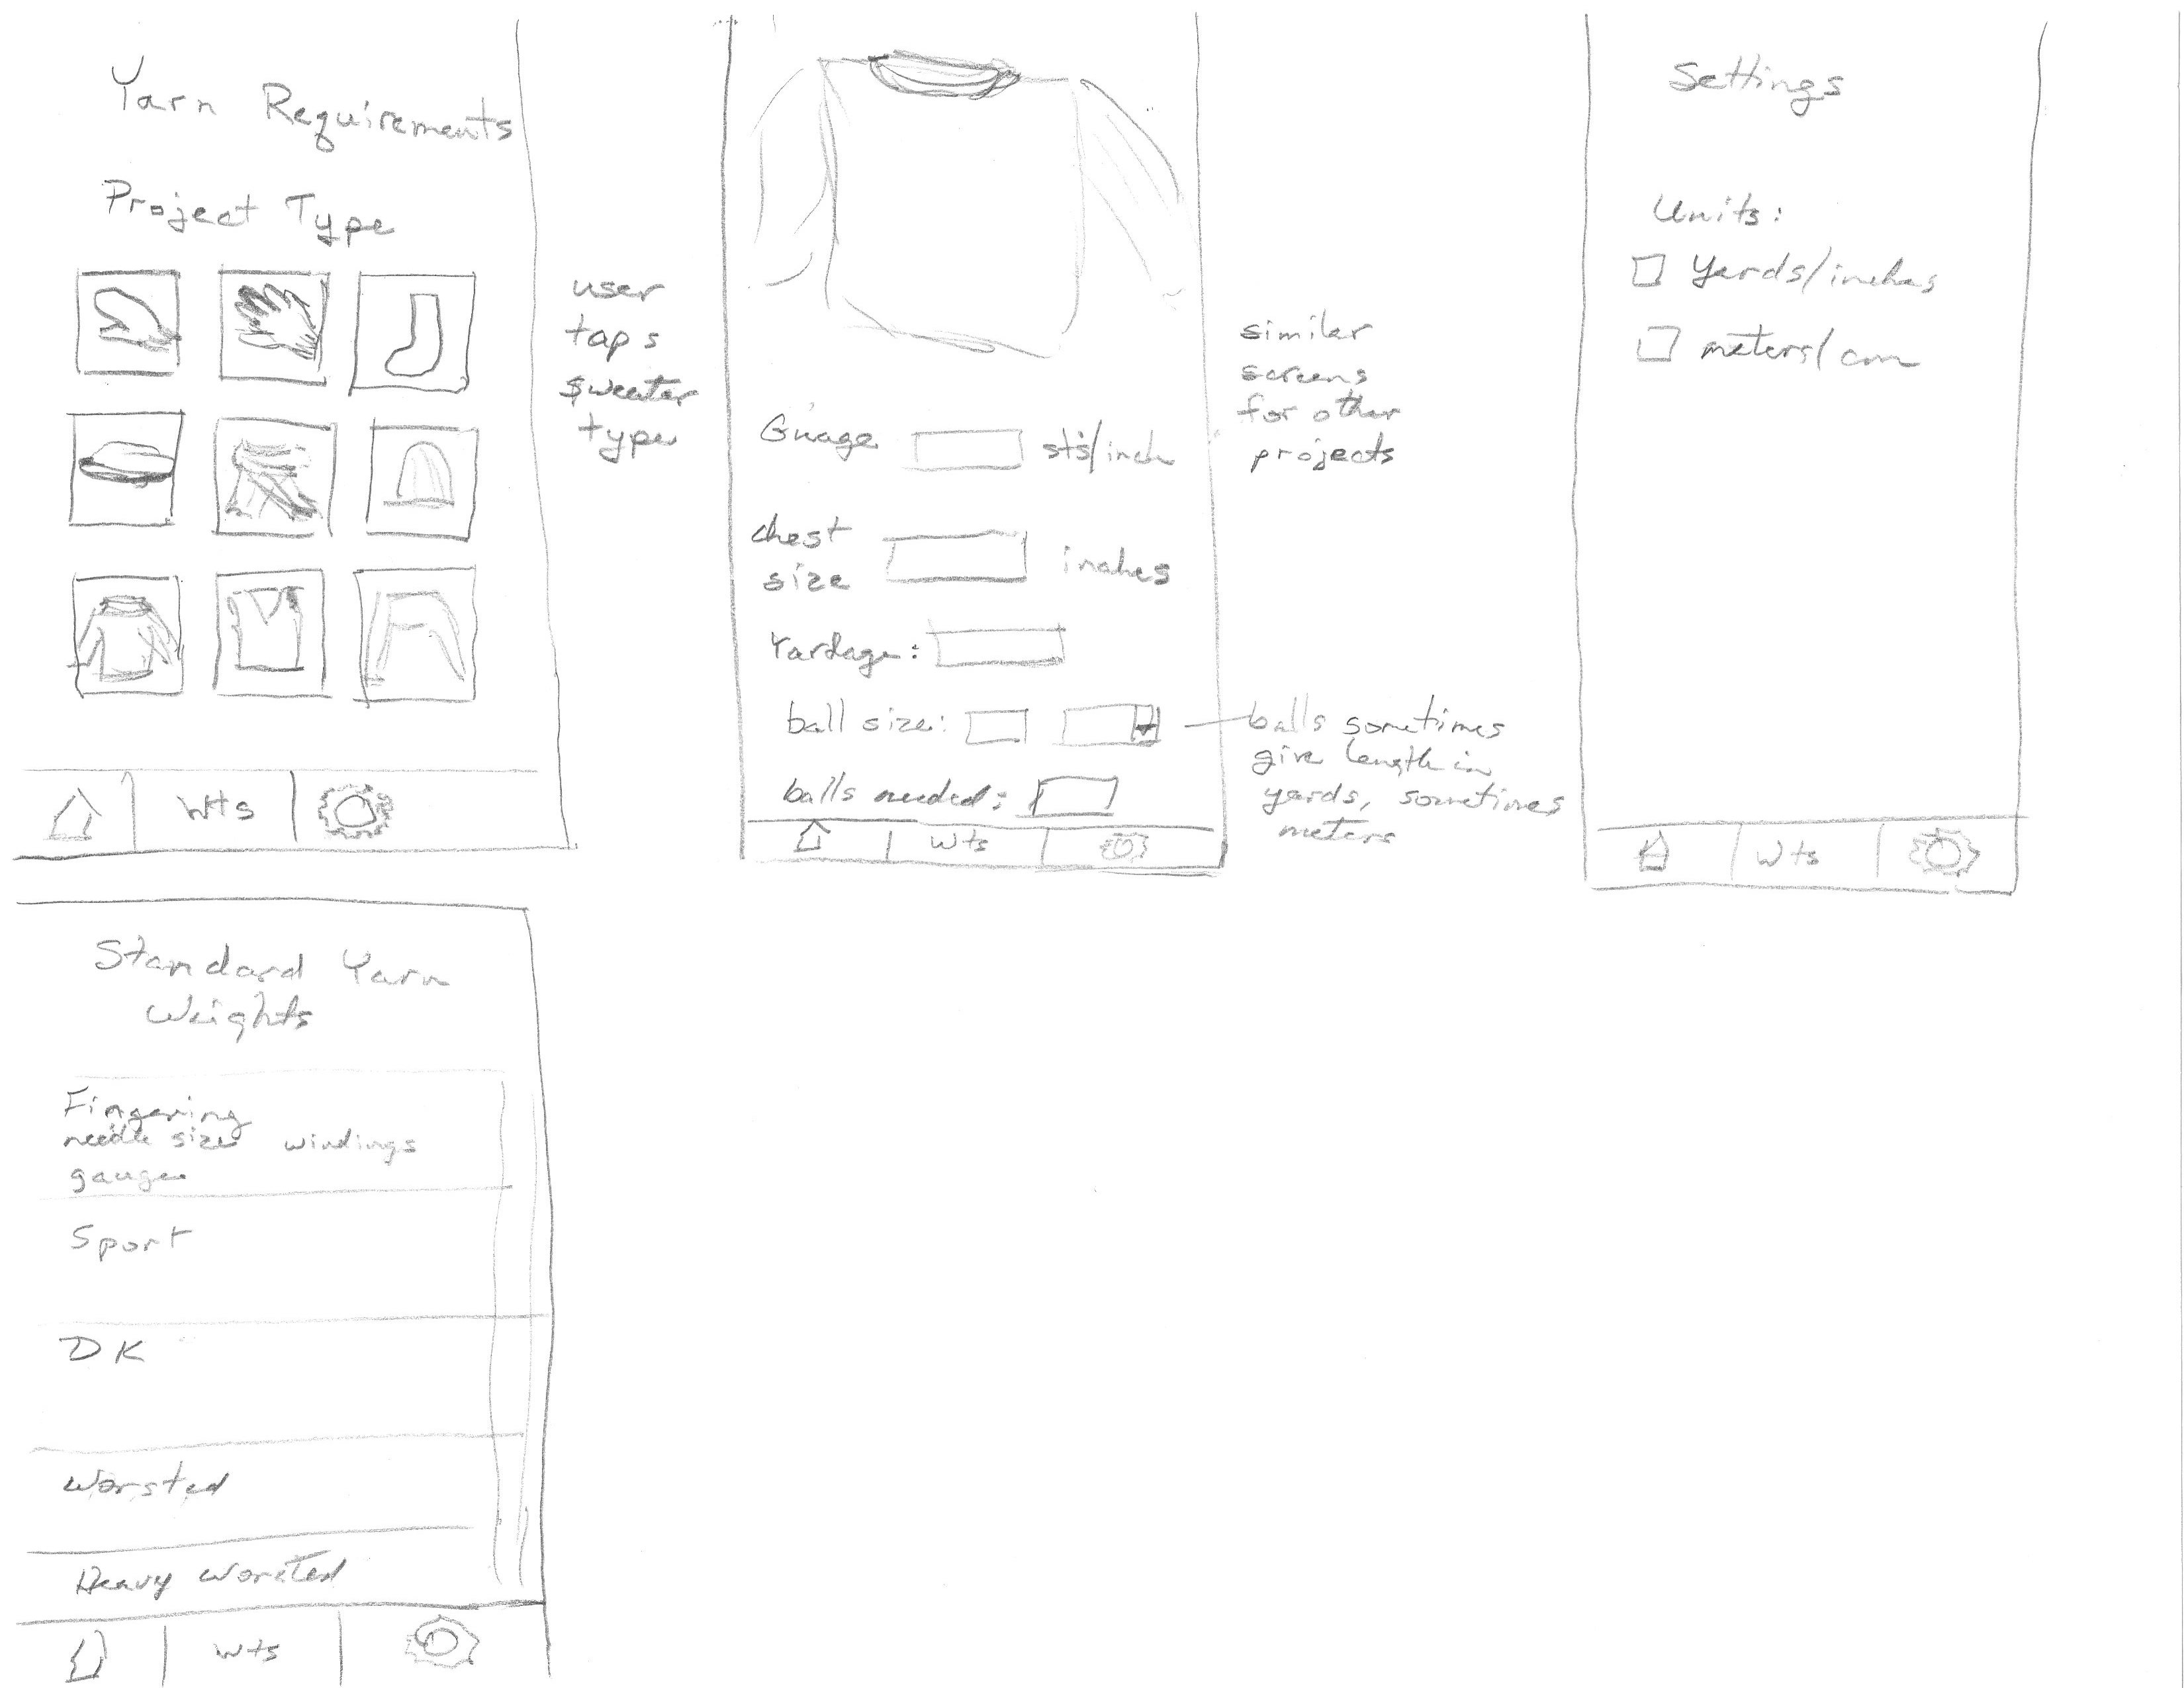 Yarn Requirements
Project Type
Wts
user
taps
sweater
type
Guage sts/inch
chest
size inches
Yardage:
ball size:
balls needed:
Wts
similar
screens
for other
projects
balls sometimes
give length in
yards, sometimes
meters
Settings
Units:
Yards/inches
meters/cm
Wts
Standard Yarn
Weights
Fingering
needle size windings
gauge
Sport
DK
Worsted
Heavy Worsted
Wts